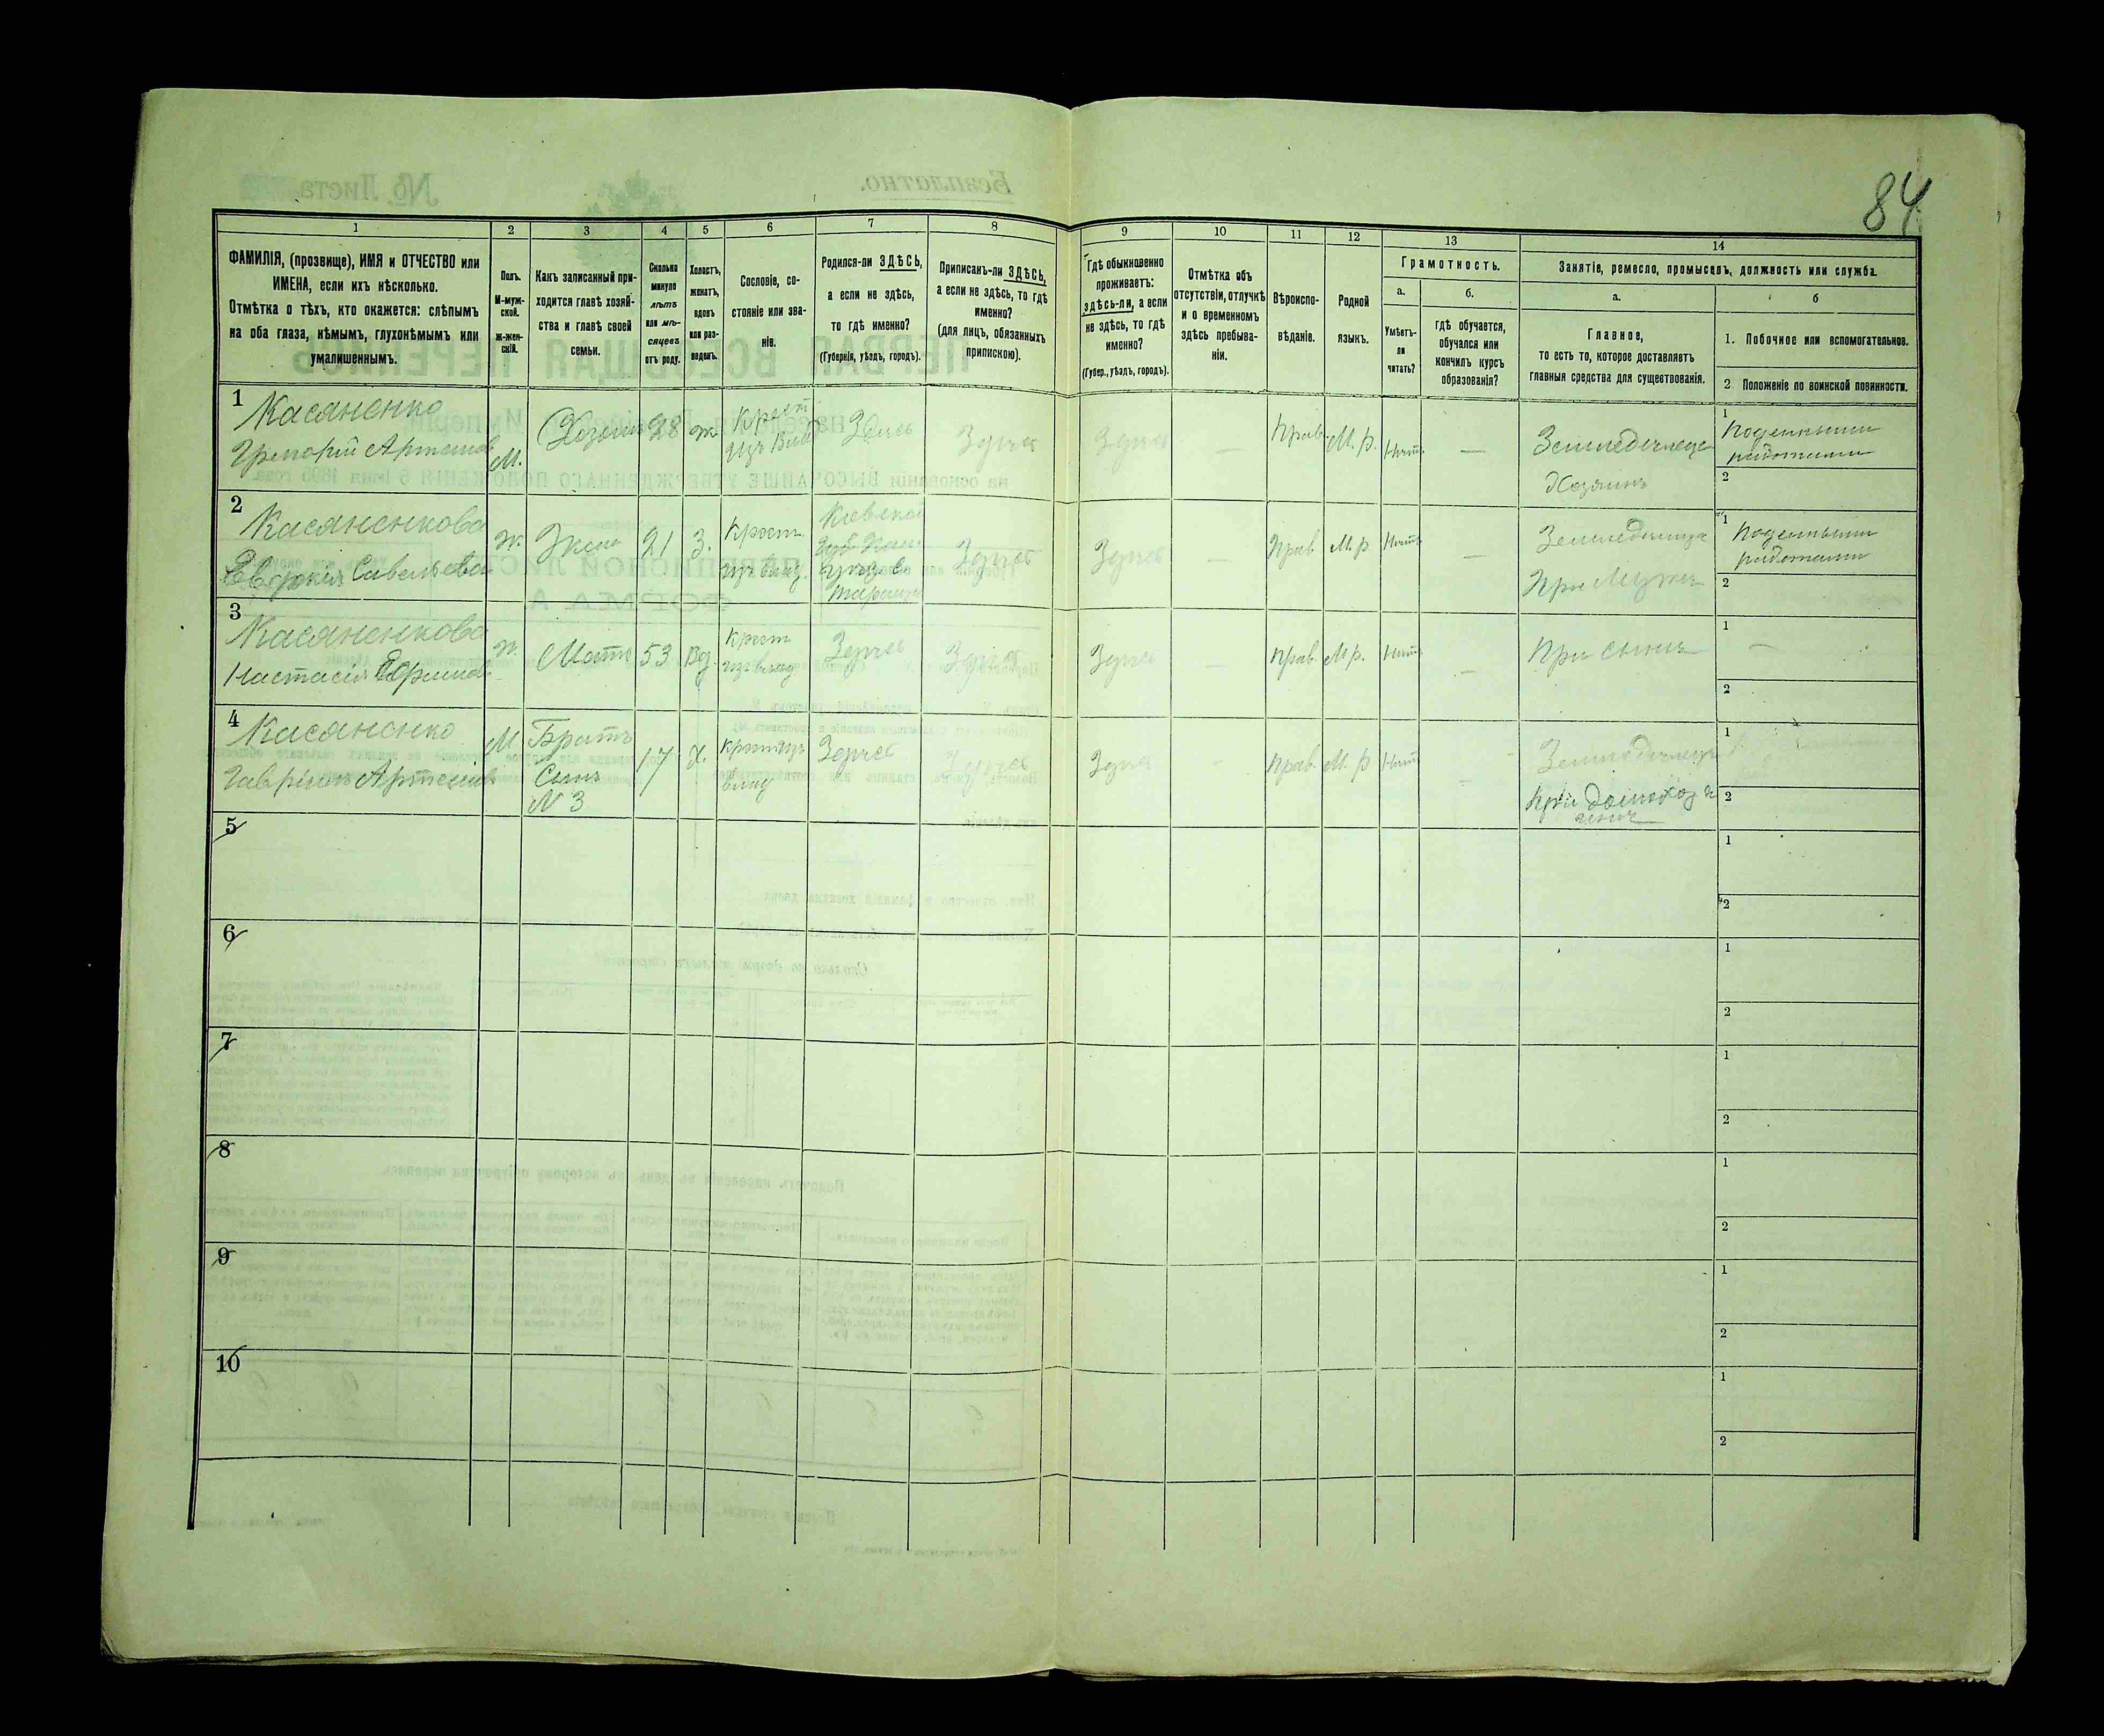 84
1
2
3
4
5
6
7
8
9
10
11
12
13
14
ФАМИЛІЯ, (прозвище), ИМЯ и ОТЧЕСТВО или
ИМЕНА, если ихъ нѣсколько.
Отмѣтка о тѣхъ, кто окажется: слѣпымъ
на оба глаза, нѣмымъ, глухонѣмымъ или
умалишеннымъ.
Полъ.
М-муж-
ской.
ж-жен-
скій.
Какъ записанный при-
ходится главѣ хозяй-
ства и главѣ своей
семьи.
Сколько
минуло
лѣтъ
или мѣ-
сяцевъ
отъ роду.
Холостъ,
женатъ,
вдовъ
или раз-
веденъ.
Сословіе, со-
стояніе или зва-
ніе.
Родился-ли ЗДѢСЬ,
а если не здѣсь,
то гдѣ именно?
(Губернія, уѣздъ, городъ).
Приписанъ-ли ЗДѢСЬ,
а если не здѣсь, то гдѣ
именно?
(для лицъ, обязанныхъ
припискою).
Гдѣ обыкновенно
проживаетъ:
здѣсь-ли, а если
не здѣсь, то гдѣ
именно?
(Губер., уѣздъ, городъ).
Отмѣтка объ
отсутствіи, отлучкѣ
и о временномъ
здѣсь пребыва-
ніи.
Вѣроиспо-
вѣданіе.
Родной
языкъ.
Грамотность.
а.
Умѣетъ-
ли
читать?
б.
гдѣ обучается,
обучался или
кончилъ курсъ
образованія?
Занятіе, ремесло, промыселъ, должность или служба.
а.
Главное,
то есть то, которое доставляетъ
главныя средства для существованія.
б
1. Побочное или вспомогательное.
2. Положеніе по воинской повинности.
1
Касяненко
Григорій Артемов
М.
Хозяин
28
ж
Крест
изъ Влад
Здѣсь
Здѣсь
Здѣсь
—
Прав.
М. р.
Нѣт
—
Земледѣлецъ
Хозяинъ
1
Поденными
работами
2
2
Касяненкова
Савельева
ж.
Жена
21
З.
Крест
изъ влад.
Кіевской
Здѣсь
Здѣсь
Прав
М. р
Нѣт
—
Земледѣлица
При Мужѣ
1
Поденными
работами
2
3
Касяненкова
Настасія
ж.
Мать
53
Вд.
Крест
изъ влад
Здѣсь
Здѣсь
Здѣсь
—
Прав.
М р.
Нѣт
—
При сынѣ
1
—
2
4
Касяненко
Гавріилъ Артемов
М
Братъ
Сынъ
N 3
17
Х.
Крест изъ
влад
Здѣсь
Здѣсь
Здѣсь
-
Прав.
М. р
Нѣт
—
Земледѣлецъ
При
1
2
5
1
2
6
1
2
7
1
2
8
1
2
9
1
2
10
1
2